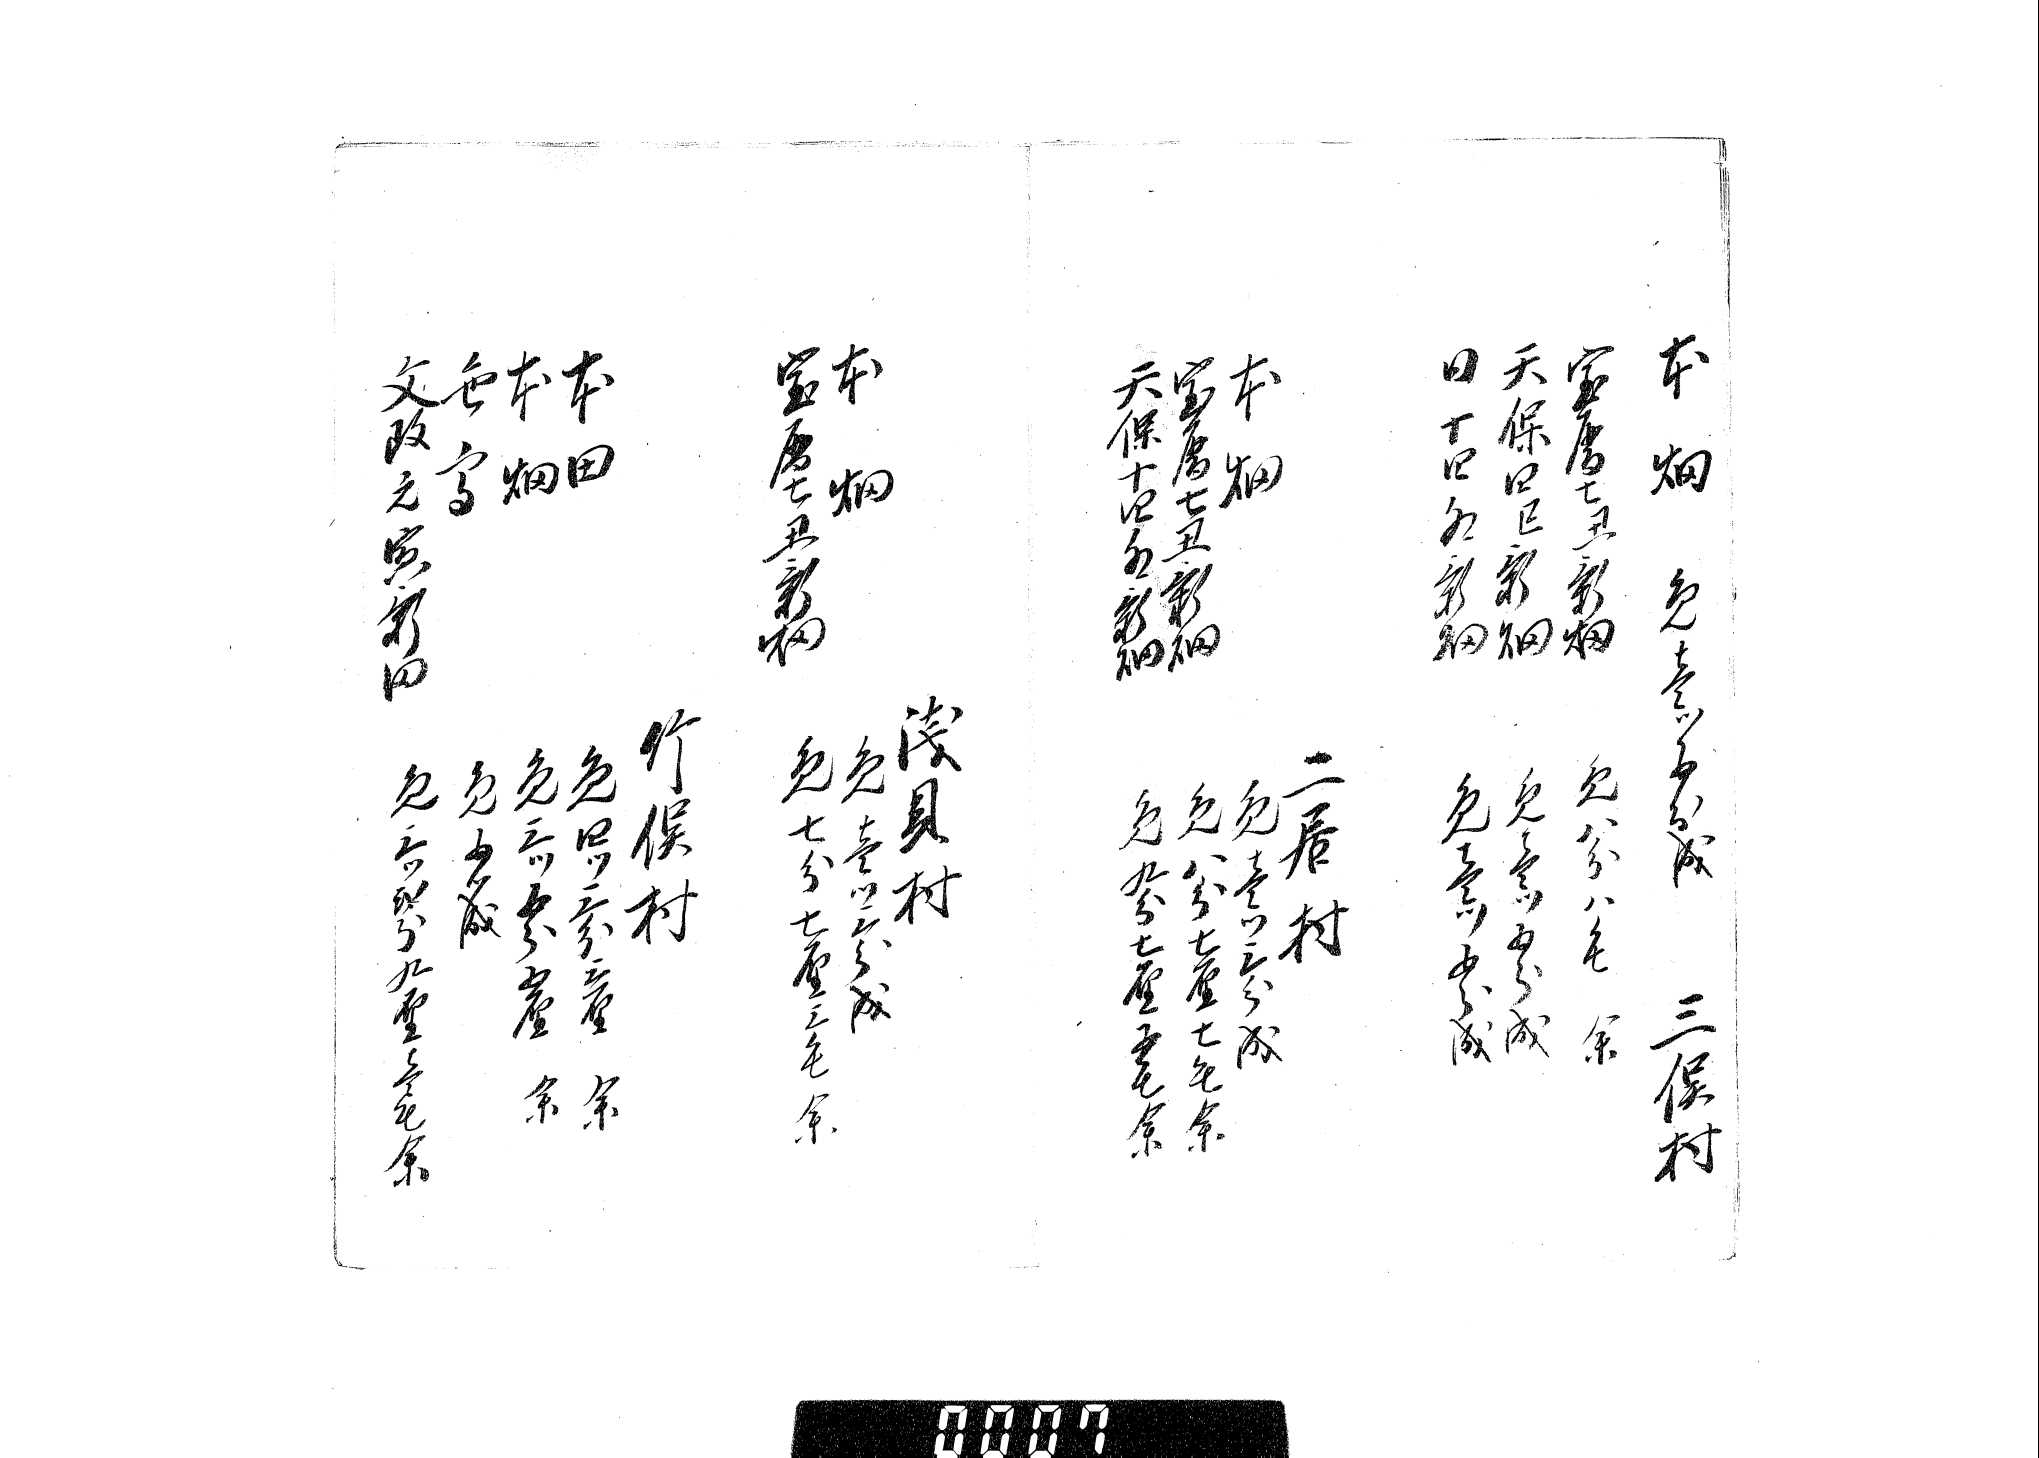 本畑 免壱ツ五分成 三俣村
宝暦七丑新畑 免八分八毛余
天保四巳新畑 免壱ツ五分成
同十四卯新畑 免壱ツ五分成
二居村
本畑 免壱ツ三分成
宝暦七丑新畑 免八分七厘七毛余
天保十四卯新畑 免九分七厘五毛余
浅貝村
本畑 免壱ツ三分成
宝暦七丑新畑 免七分七厘三毛余
竹俣村
本田 免四ツ三分三厘余
本畑 免三ツ五分五厘余
色高 免五ツ成
文政元寅新田 免三ツ四分九厘壱毛余
0007